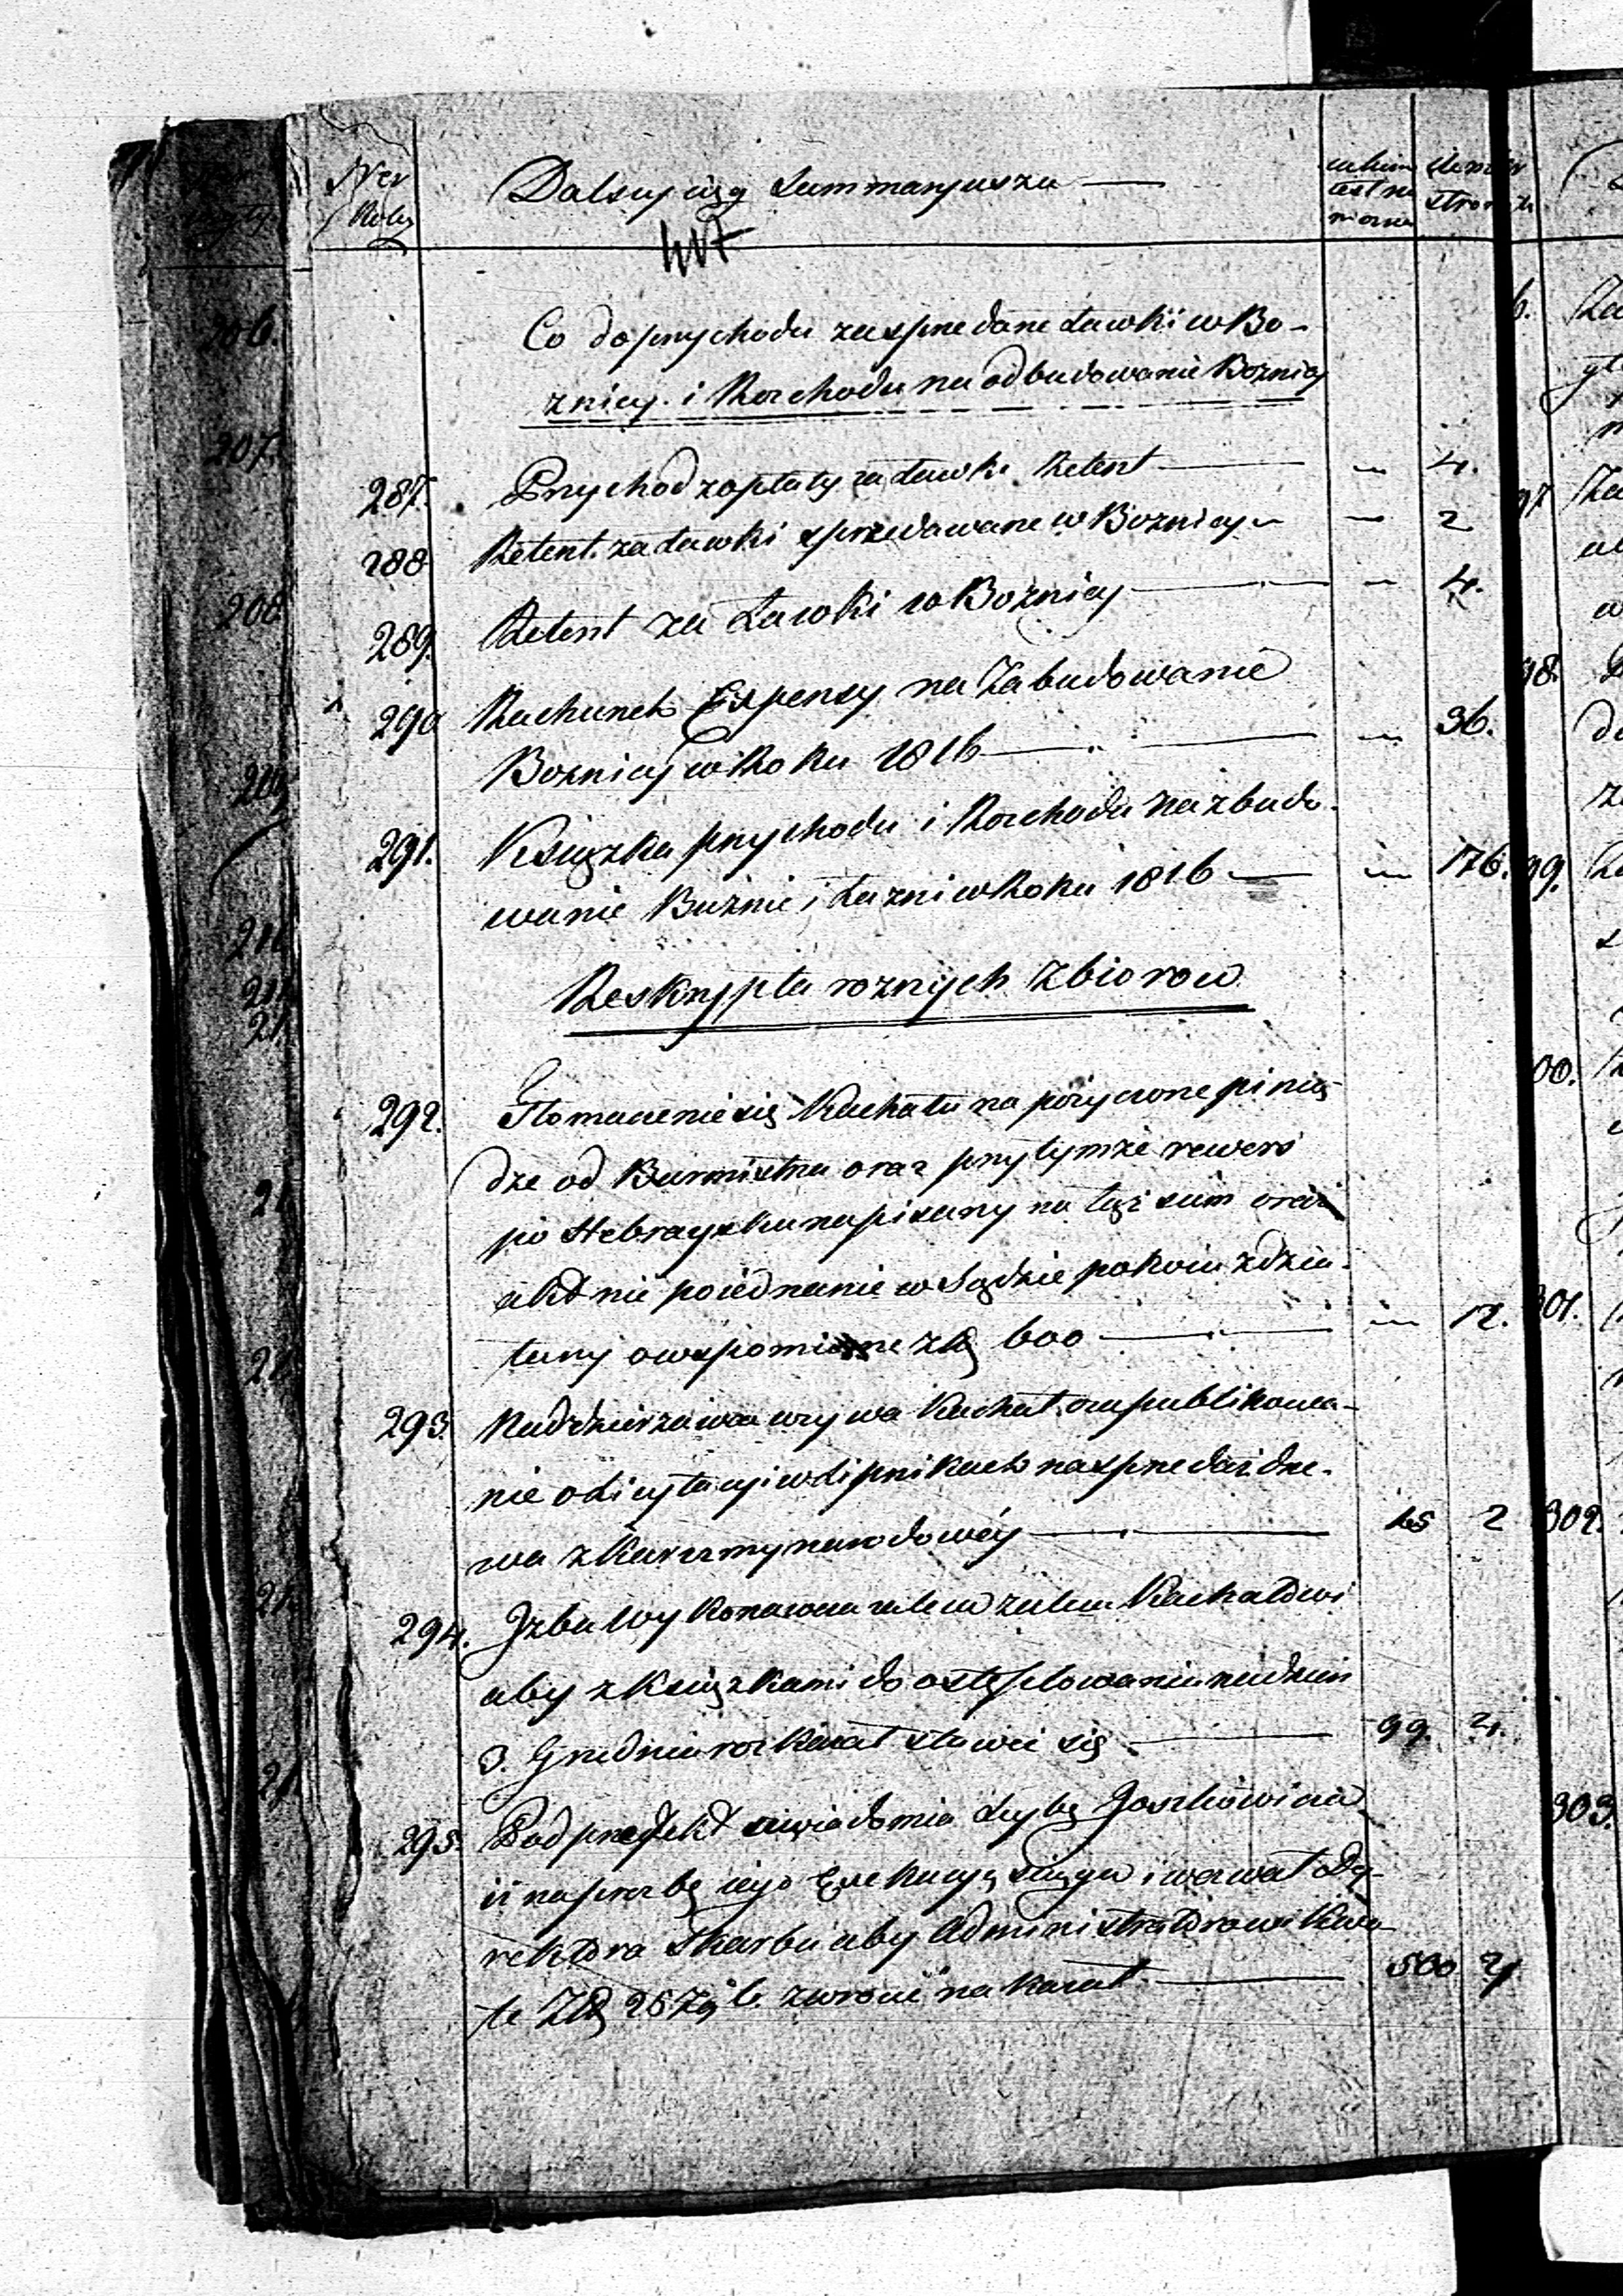 Ner
Roby
Dalszy ciąg Summaryusza —
iest na
Co do przychodu za sprzedane Ławki w Bo-
znicy. i Rozchodu na odbudowanie Boznicy
287. Przychod zapłaty za Ławki Retent — — 4.
288 Retent za Ławki sprzedawane w Boznicy — — 2
289. Retent za Ławki w Boznicy — — 4.
290 Rachunek Expensy na Zabudowanie
Boznicy w Roku 1816 — — 36.
291. Książka przychodu i Rozchodu na zbudo-
wanie Buznic i Łazni w Roku 1816 — — 176.
Reskrypta roznych Zbiorow
292. Tłomaczenie się Kachału na pożyczone pinią
dze od Burmistrza oraz przy tymże rewers
po Hebraysku napisany na tęż sum oraz
akt nie poiednanie w Sądzie pokoiu zdzia-
łany o wspomione złp 600 — — 12.
293. Naddzierzawca wzywa Kachał o opublikowa-
nie o licytacyi w lipnikach na sprzedaż drze-
wa z Karczmy narodowéy — 2
294. Izba Wykonawcza zaleca Kachałowi
aby z książkami do ostęplowania na dzień
3. Grudnia rozkazał stawić się — 99. 2.
295. Podprefekt uwiadomia Leybę Joszkowicza
iż na prozbę iego Exekucyą sciąga i wezwał Dy-
rektora Skarbu aby Administratorowi Kwo
te Złp 267 gr 6. zwrocić nakazał — 500 2
206.
207.
208
302.
303.